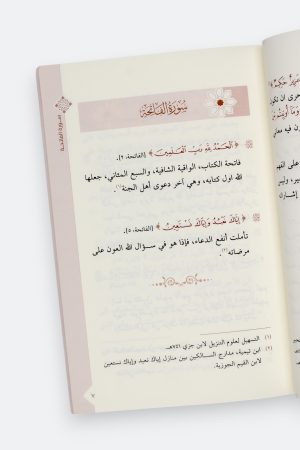 سُورَةُ الفَاتِحَةِ
﴿ الْحَمْدُ لِلَّهِ رَبِّ الْعَالَمِينَ ﴾ (الفاتحة: ٢).
فاتحة الكتاب، الواقية الشافية، والسبع المثاني، جعلها
الله اول كتابه، وهي آخر دعوى أهل الجنة(١).
﴿ إِيَّاكَ نَعْبُدُ وَإِيَّاكَ نَسْتَعِينُ ﴾ (الفاتحة: ٥).
تأملت أنفع الدعاء، فإذا هو في سؤال الله العون على
مرضاته(٢).
(١) التسهيل لعلوم التنزيل لابن جزي ٧٤١هـ.
(٢) ابن تيمية، مدارج السالكين بين منازل إياك نعبد وإياك نستعين
لابن القيم الجوزية.
٧
سورة الفاتحة
عَزِيزٌ حَكِيمٌ